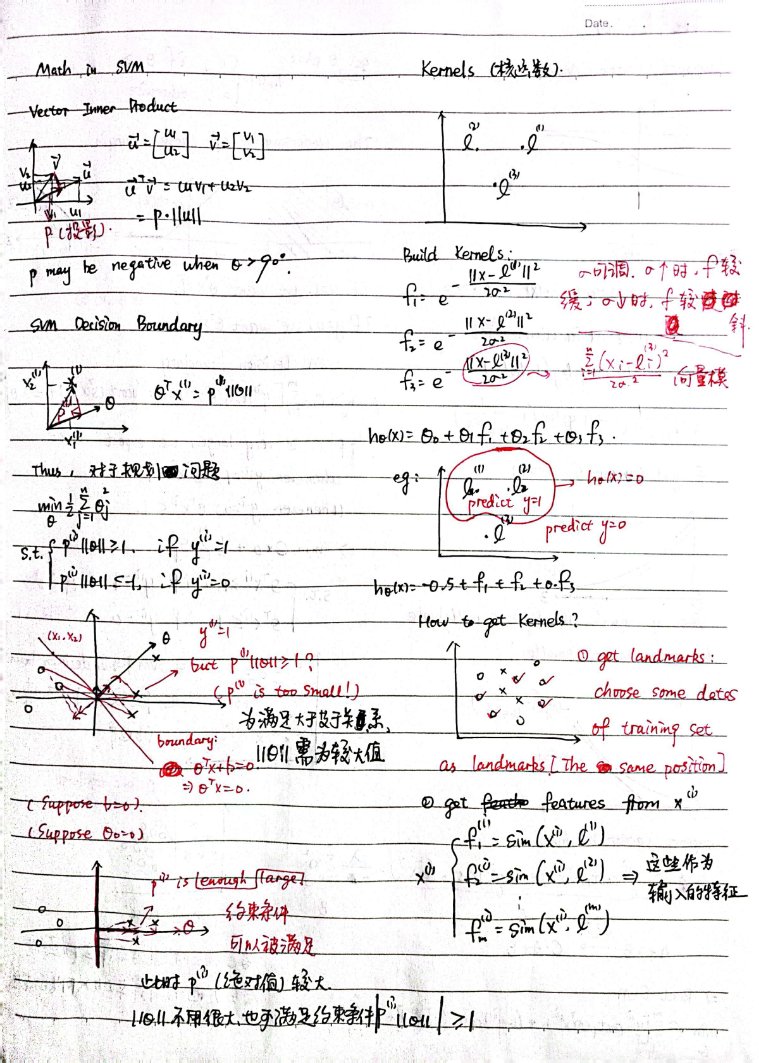 Date.
Math in SVM
Vector Inner Product
u⃗ = [u₁ u₂] v⃗ = [v₁ v₂]
v⃗ u⃗
v₂
u₂
v₁ u₁
u⃗ᵀv⃗ = u₁v₁ + u₂v₂
= p·||u||
p (投影).
p may be negative when θ > 90°.
SVM Decision Boundary
x₂⁽ⁱ⁾ x⁽ⁱ⁾
θ
p⁽ⁱ⁾
x₁⁽ⁱ⁾
θᵀx⁽ⁱ⁾ = p⁽ⁱ⁾||θ||
Thus, 对于规划问题
min_θ ½ Σⱼ₌₁ⁿ θⱼ²
s.t. { p⁽ⁱ⁾||θ|| ≥ 1, if y⁽ⁱ⁾=1
p⁽ⁱ⁾||θ|| ≤ -1, if y⁽ⁱ⁾=0
(x₁, x₂)
θ
y⁽ⁱ⁾=1
but p⁽ⁱ⁾||θ|| ≥ 1 ?
(p⁽ⁱ⁾ is too small!)
为满足大于等于关系,
||θ|| 需为较大值
boundary:
θᵀx+b=0
⇒ θᵀx=0.
(Suppose b=0).
(Suppose θ₀=0)
p⁽ⁱ⁾ is enough large.
约束条件
可以被满足
θ
此时 p⁽ⁱ⁾ (绝对值) 较大.
||θ|| 不用很大, 也可满足约束条件 |p⁽ⁱ⁾||θ|| | ≥ 1
Kernels (核函数).
l⁽²⁾ l⁽¹⁾
l⁽³⁾
Build Kernels:
f₁ = e^(-||x-l⁽¹⁾||²/2σ²)
σ可调. σ↑时, f较
缓; σ↓时, f较
斜
f₂ = e^(-||x-l⁽²⁾||²/2σ²)
f₃ = e^(-||x-l⁽³⁾||²/2σ²) → Σᵢ₌₁ⁿ(xᵢ-lᵢ⁽³⁾)²/2σ² 向量模
hθ(x) = θ₀ + θ₁f₁ + θ₂f₂ + θ₃f₃.
eg:
l₁⁽¹⁾ l₂⁽²⁾ → hθ(x)=0
predict y=1
l⁽³⁾
predict y=0
hθ(x) = -0.5 + f₁ + f₂ + 0·f₃
How to get Kernels?
① get landmarks:
choose some dates
of training set
as landmarks [The same position]
② get features from x⁽ⁱ⁾
x⁽ⁱ⁾ { f₁⁽ⁱ⁾ = sim(x⁽ⁱ⁾, l⁽¹⁾)
f₂⁽ⁱ⁾ = sim(x⁽ⁱ⁾, l⁽²⁾) ⇒ 这些作为
输入的特征
⋮
fₘ⁽ⁱ⁾ = sim(x⁽ⁱ⁾, l⁽ᵐ⁾)